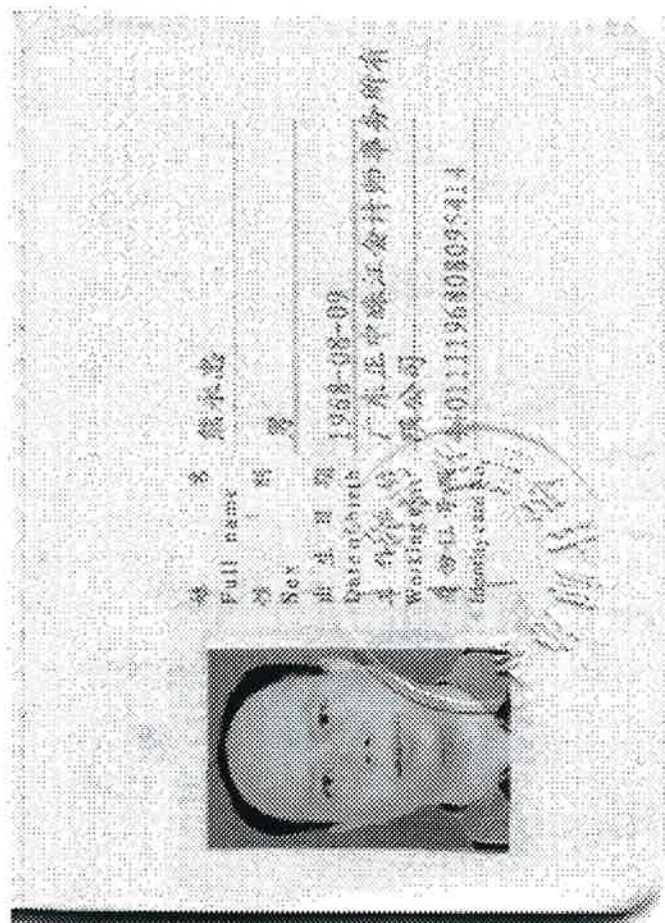 姓 名 熊永忠
Full name
性 别 男
Sex
出 生 日 期 1968-08-09
Date of birth
工 作 单 位 广东正中珠江会计师事务所有
限公司
Working unit
身份证号码 440111196808095414
Identity card No.